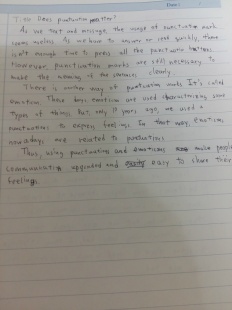 Does punctuation matter?
As we text and message, the usage of punctuation mark
seems useless. As we have to answer or send quickly, there
isn't enough time to press all the punctuation buttons.
However, punctuation marks are still necessary to
make the meaning of the sentences clearly.
There is another way of punctuation marks. It's called
emoticon. These days emoticon are used characterizing some
types of things. But only years ago, we used a
punctuations to express feelings. In that way, emoticons,
nowadays, are related to punctuations.
Thus, using punctuations and emoticons make people
communicating upgraded and easy to share their
feelings.